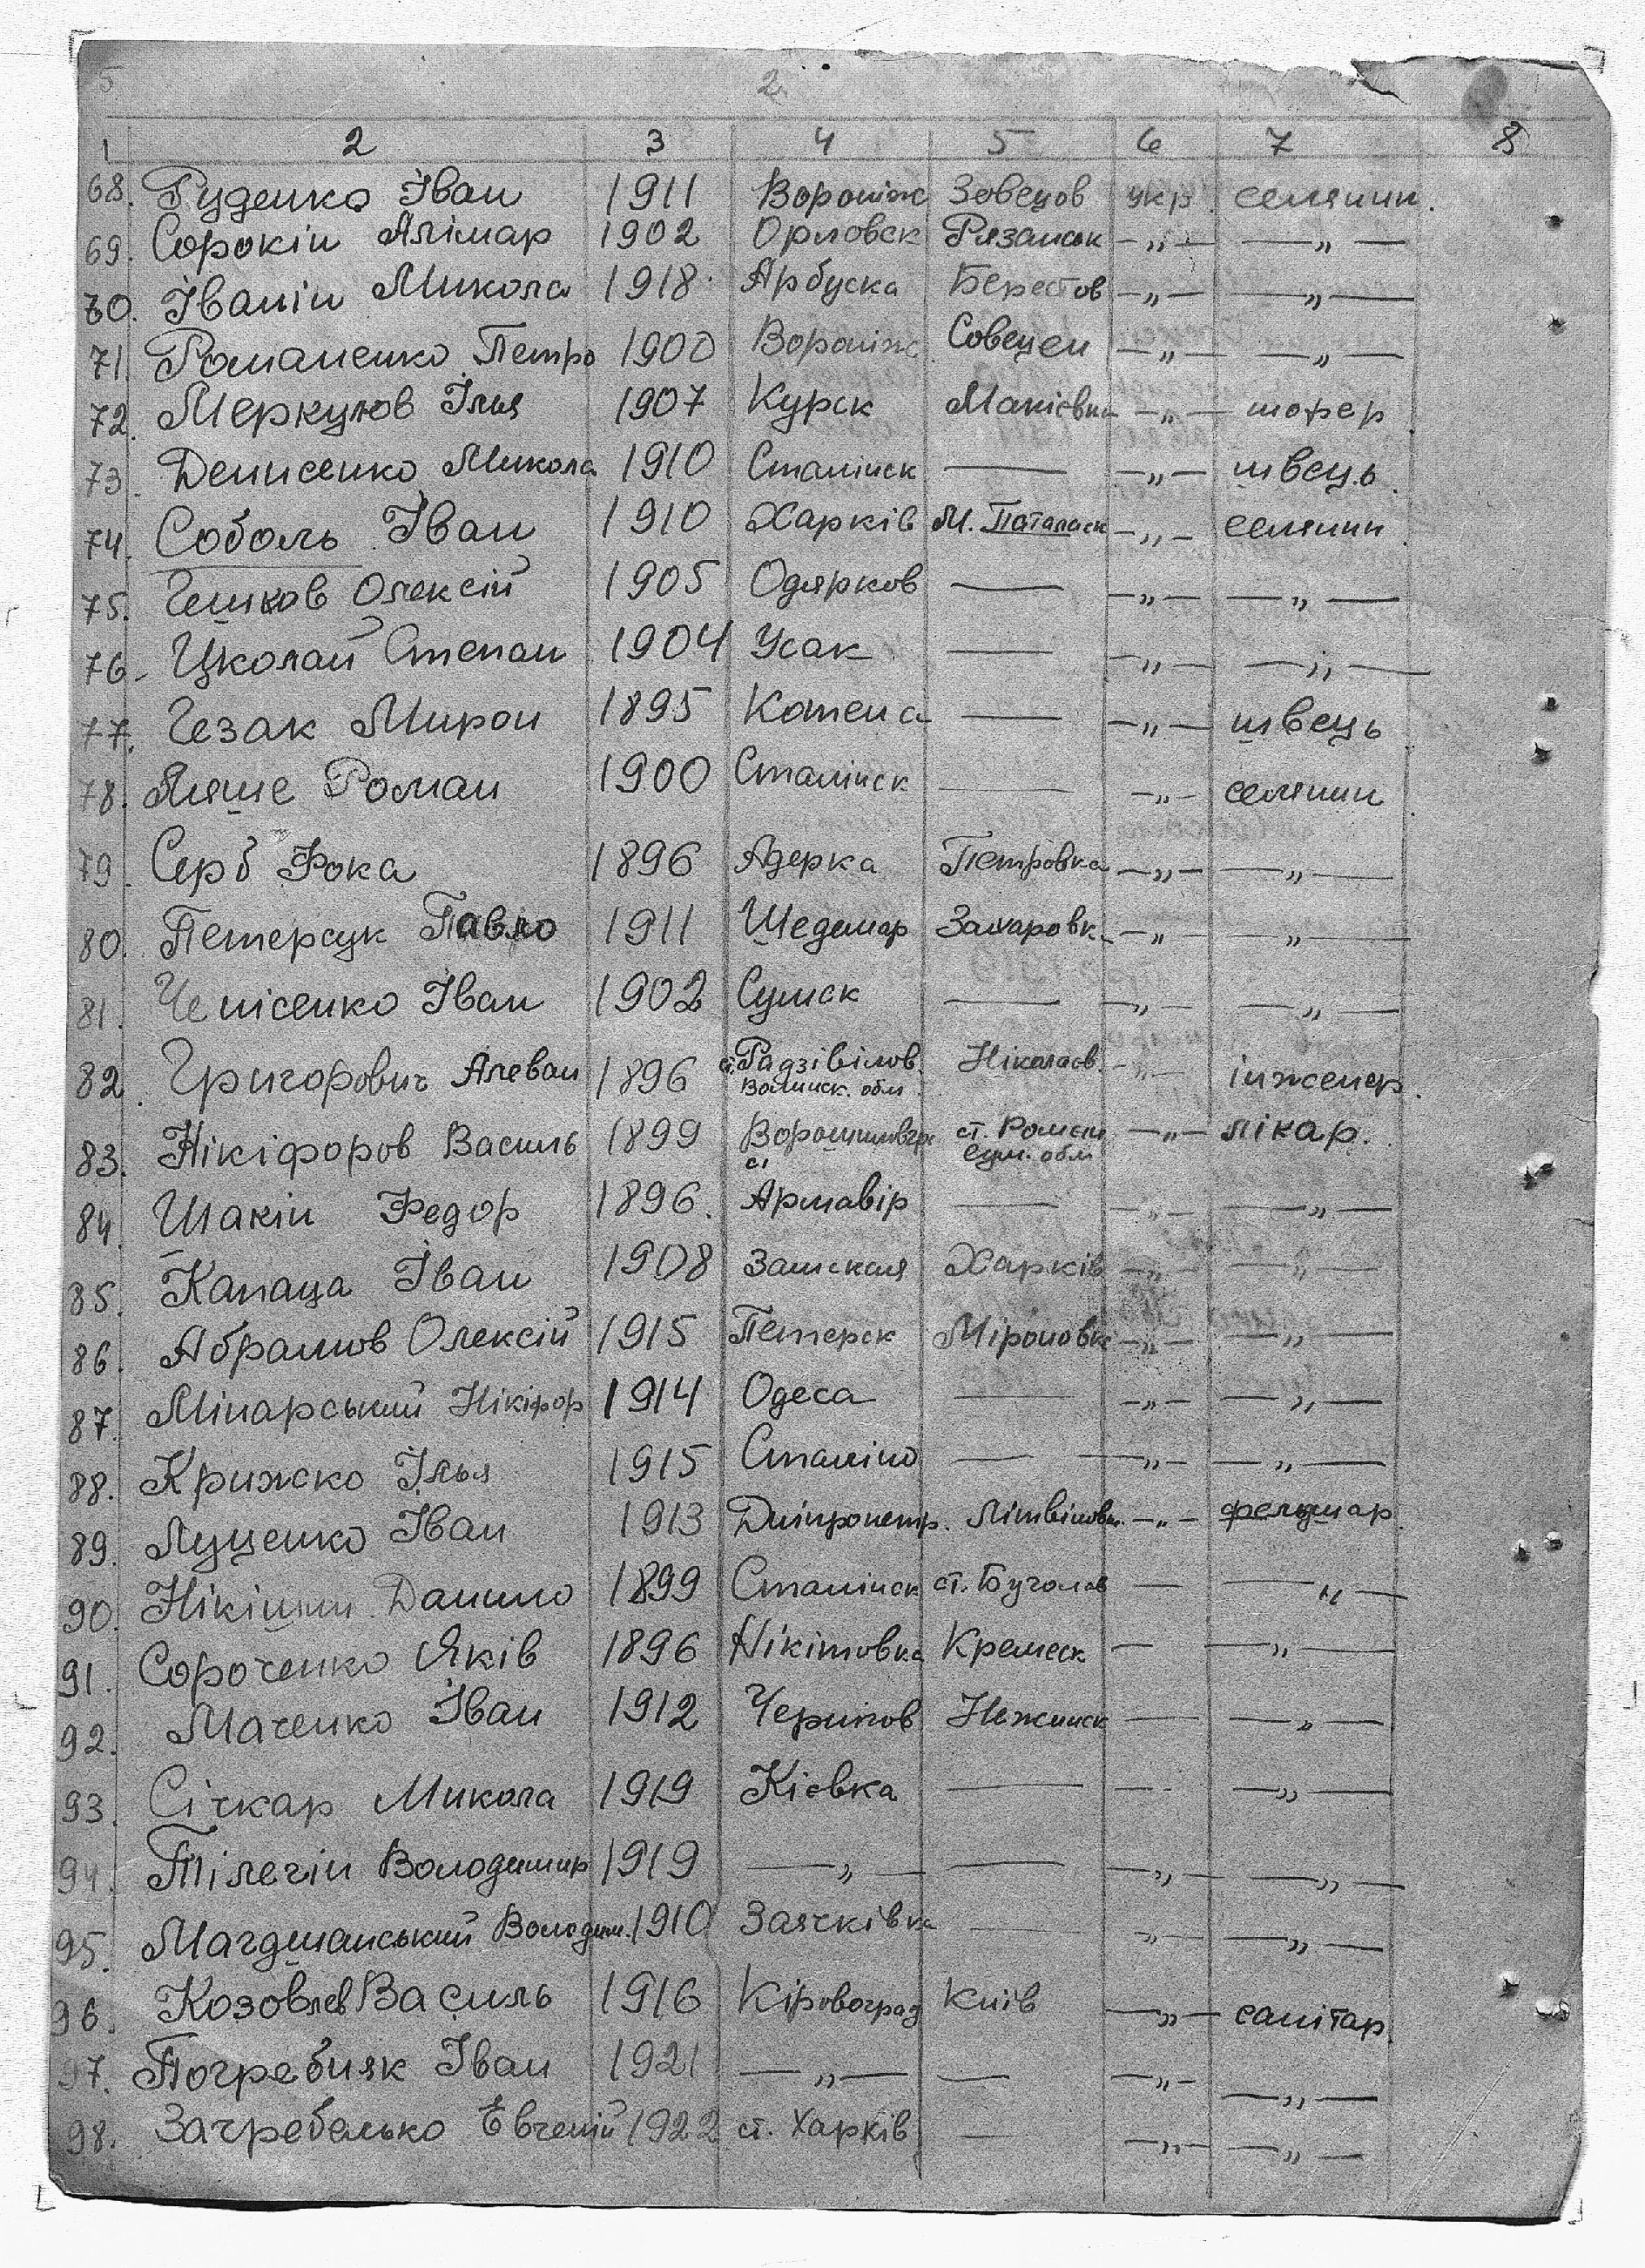 5 2
1 2 3 4 5 6 7 8
68. Руденко Іван 1911 Вороніж Зовецов укр. селянин.
69. Сорокін Алімар 1902 Орловск Рязанськ —„— —„—
70. Іванін Микола 1918 Арбуска Берестов —„— —„—
71. Романенко Петро 1900 Вороніж Совецен —„— —„—
72. Меркулов Ілля 1907 Курск Макієвка —„— шофер
73. Денисенко Микола 1910 Сталінск — —„— швець.
74. Соболь Іван 1910 Харків М. —„— селянин
75. Олексій 1905 Одярков — —„— —„—
76. Цколай Степан 1904 Усак — —„— —„—
77. Гезак Мирон 1895 Котена — —„— швець
78. Ляше Роман 1900 Сталінск — —„— селянин
79. Серб Фока 1896 Адерка Петровка —„— —„—
80. Петерсук Павло 1911 Шедемар Захаровк. —„— —„—
81. Іван 1902 Сумск — —„— —„—
82. Григорович Алеван 1896 ст. Радзівілов. Волинск. обл. Ніколаєв. —„— інженер.
83. Нікіфоров Василь 1899 ст. Ромени Сум. обл. —„— лікар.
84. Шакін Федор 1896. Армавір — —„— —„—
85. Капаца Іван 1908 Замская Харків —„— —„—
86. Абрамов Олексій 1915 Петерск Міроновк —„— —„—
87. Мінарський Нікіфор 1914 Одеса — —„— —„—
88. Крижко Ілья 1915 Сталіно — —„— —„—
89. Луценко Іван 1913 Дніпропетр. Літвіновк. —„— фельдшар.
90. Нікішин Данило 1899 Сталінск ст. — —„—
91. Сороченко Яків 1896 Нікітовка Кремеск — —„—
92. Маченко Іван 1912 Чернігов Нежинск — —„—
93. Січкар Микола 1919 Кієвка — — —„—
94. Тілегін Володимир 1919 —„— — —„— —„—
95. Магдшанський Володим. 1910 Заячківка — —„— —„—
96. Козовлев Василь 1916 Кіровоград Київ —„— санітар.
97. Погребняк Іван 1921 —„— — —„— —„—
98. Загребелько Евгеній 1922 ст. Харків — —„— —„—